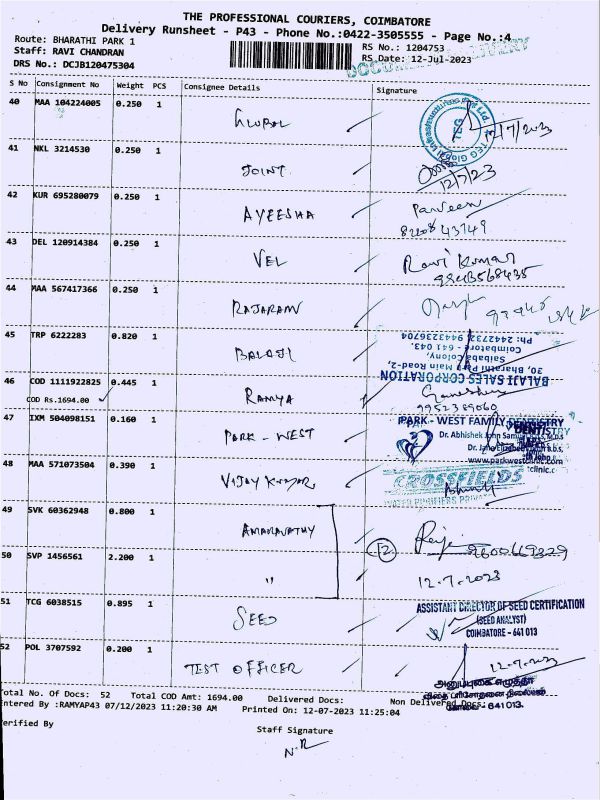 THE PROFESSIONAL COURIERS, COIMBATORE
Delivery Runsheet - P43 - Phone No.:0422-3505555 - Page No.:4
Route: BHARATHI PARK 1
RS No.: 1204753
Staff: RAVI CHANDRAN
RS Date: 12-Jul-2023
DRS No.: DCJB120475304
S No Consignment No Weight PCS Consignee Details Signature
40 MAA 104224005 0.250 1 GLOBAL 12/7/2023
41 NKL 3214530 0.250 1 JOINT 12/7/23
42 KUR 695280079 0.250 1 AYEESHA Parveen
43749
43 DEL 120914384 0.250 1 VEL Ravi Kumar
44 MAA 567417366 0.250 1 RAJARAM
45 TRP 6222283 0.820 1 BALAJI
BALAJI SALES CORPORATION
30, Bharathi Park Main Road-2,
Saibaba Colony,
Coimbatore - 641 043.
Ph: 2442732, 9443236704
46 COD 1111922825 0.445 1 RAMYA
COD Rs.1694.00
9952389060
47 IXM 504098151 0.160 1 PARK - WEST
PARK - WEST FAMILY DENTISTRY
DENTISTRY
Dr. Abhishek John Samuel
www.parkwestclinic.c
48 MAA 571073504 0.390 1 VIJAY KUMAR
CROSSFIELDS
49 SVK 60362948 0.800 1 AMARAVATHY
2
9600669329
50 SVP 1456561 2.200 1 "
12.7.2023
51 TCG 6038515 0.895 1 SEED
ASSISTANT DIRECTOR OF SEED CERTIFICATION
(SEED ANALYST)
COIMBATORE - 641 013
52 POL 3707592 0.200 1 TEST OFFICER 12.7.2023
கோவை - 641 013.
Total No. Of Docs: 52 Total COD Amt: 1694.00 Delivered Docs: Non Delivered Docs:
Entered By :RAMYAP43 07/12/2023 11:20:30 AM Printed On: 12-07-2023 11:25:04
Verified By
Staff Signature
N.R